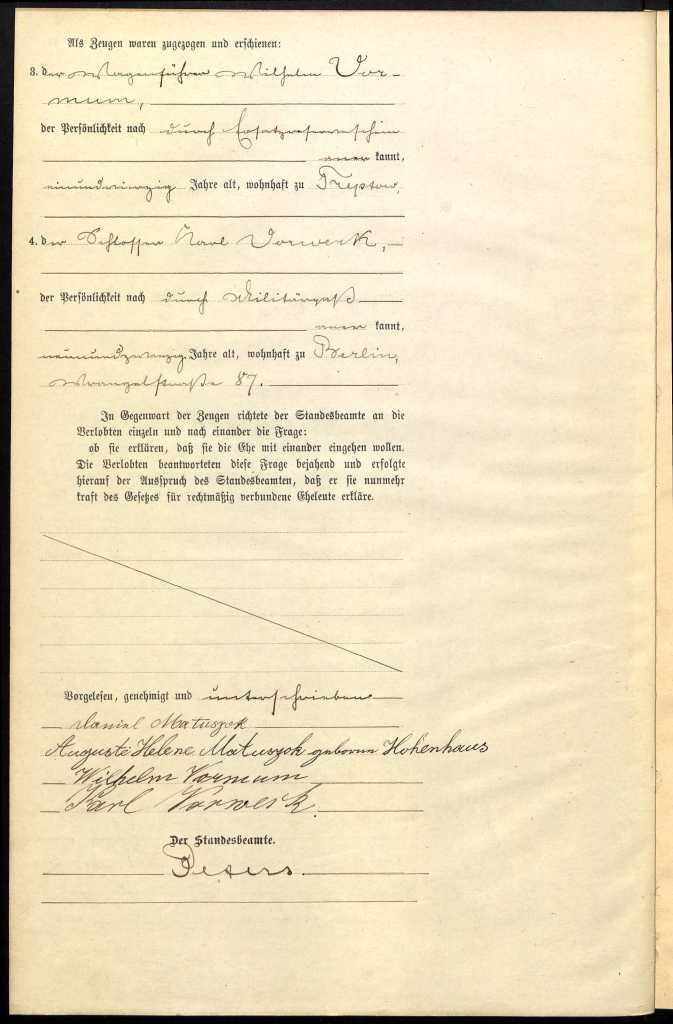 Als Zeugen waren zugezogen und erschienen:
3. der Wagenführer Wilhelm Vor-
mum,
der Persönlichkeit nach durch Ersatzreserveschein
aner kannt,
einundvierzig Jahre alt, wohnhaft zu Treptow,
4. der Schlosser Karl Vorwerk,
der Persönlichkeit nach durch Militärpaß
aner kannt,
neunundzwanzig Jahre alt, wohnhaft zu Berlin,
Wrangelstraße 87.
In Gegenwart der Zeugen richtete der Standesbeamte an die
Verlobten einzeln und nach einander die Frage:
ob sie erklären, daß sie die Ehe mit einander eingehen wollen.
Die Verlobten beantworteten diese Frage bejahend und erfolgte
hierauf der Ausspruch des Standesbeamten, daß er sie nunmehr
kraft des Gesetzes für rechtmäßig verbundene Eheleute erkläre.
Vorgelesen, genehmigt und unterschrieben
Daniel Matuszek
Auguste Helene Matuszek geborene Hohenhaus
Wilhelm Vormum
Karl Vorwerk.
Der Standesbeamte.
Peters